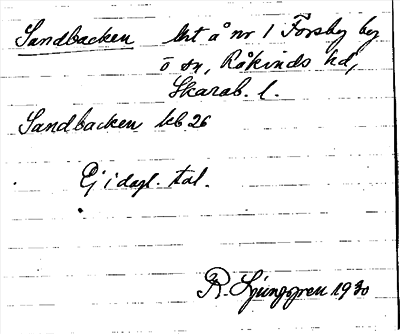 Sandbacken Urt å nr 1 Forsby by
o sn, Kåkinds hd,
Skarab. l.
Sandbacken kb 26
Ej i dagl. tal.
R. Ljunggren 1930